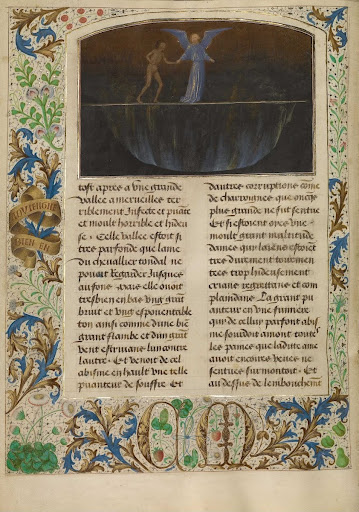 tost apres a vne grande
vallee a merueilles ter
riblement Infecte et puāte
et moult horrible et hideu
se · Celle vallee estoit si
tres parfonde que lame
du cheuallier tondal ne
pouoit regarder Jusques
au fons · Mais elle ouoit
tresbien en bas vng grāt
bruit et vng espouentable
ton ainsi comme dune biē
grant flambe et dun grāt
vent estriuans lun contre
lautre · Et venoit de cel
abisme en hault vne telle
puanteur de souffre Et
dautres corruptions cōme
de charroignes que oncqs
plus grande ne fut sentue
Et si estoient oyes vne
moult grant multitude
dames qui la ens estoiēt
tres durement tourmen
trees trop hideusement
crians regretans et com
plaindans · La grant pu
anteur en vne fumiere
qui de cellui parfont abis
me soudoit amont toute
les paines que ladite ame
auoit encoires veues ne
sentues surmontoit · Et
au dessus de lemboucheu͞r
CM